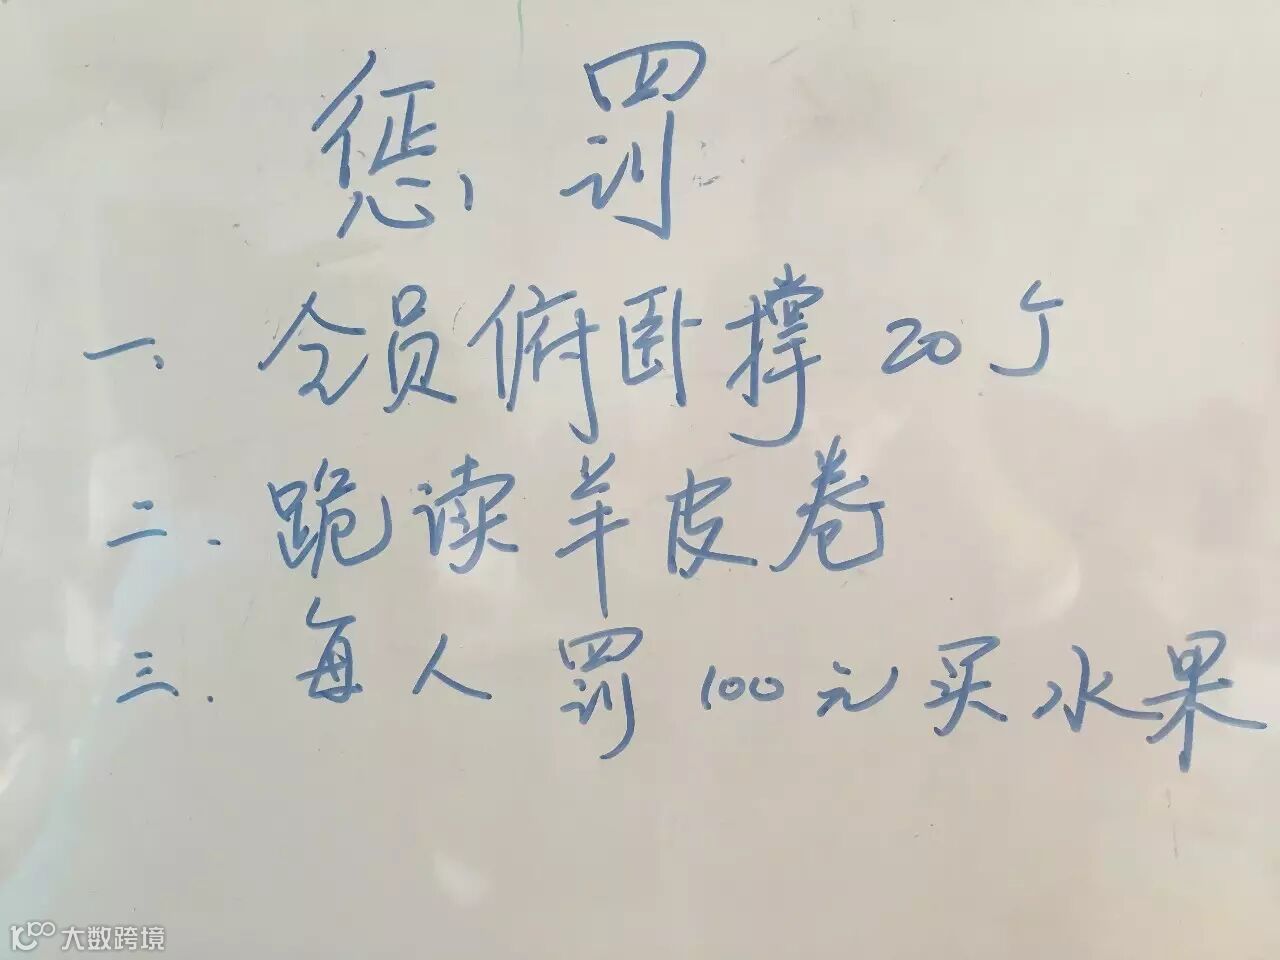 惩罚
一、全员俯卧撑20个
二.跪读羊皮卷
三.每人罚100元买水果
大数跨境